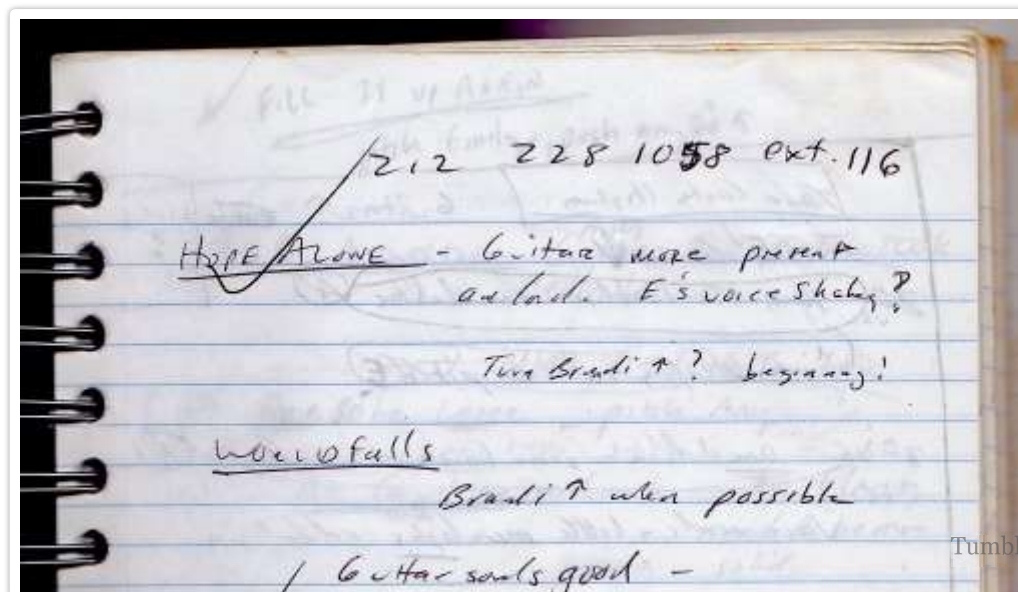 212 228 1058 ext. 116
HOPE ALONE - Guitar more present
and loud. E's voice shakey?
Turn Brandi ↑? beginning!
World Falls
Brandi ↑ when possible
Guitar sounds good -
Tumbl